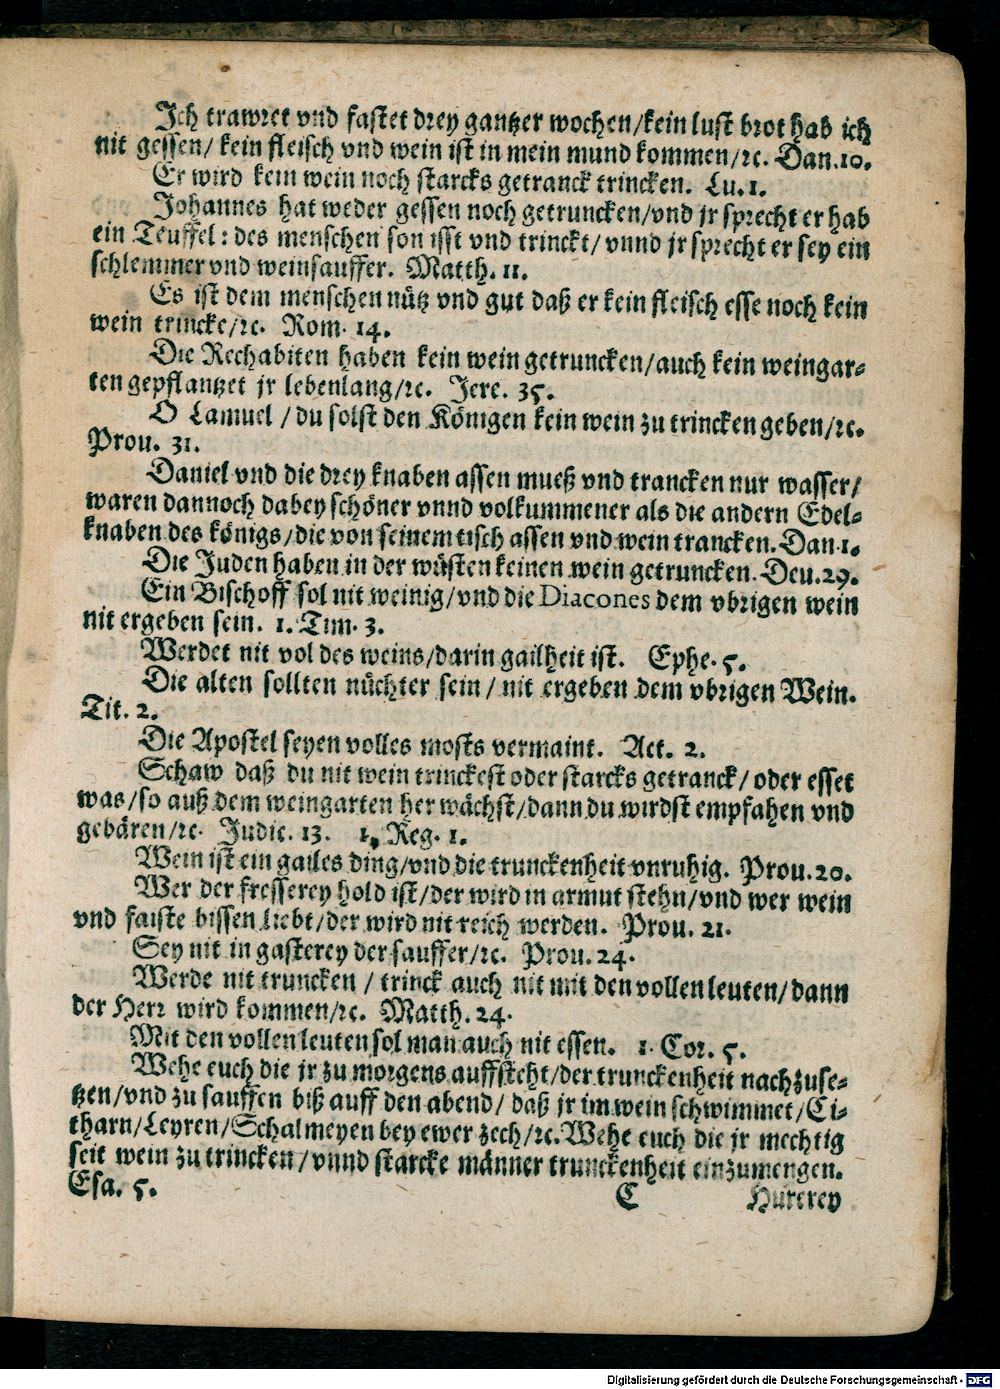 Ich trawret vnd fastet drey gantzer wochen/kein lust brot hab ich
nit gessen/ kein fleisch vnd wein ist in mein mund kommen/ꝛc. Dan.10.
Er wird kein wein noch starcks getranck trincken. Lu.1.
Johannes hat weder gessen noch getruncken/vnd jr sprecht er hab
ein Teuffel: des menschen son isst vnd trinckt/ vnnd jr sprecht er sey ein
schlemmer vnd weinsauffer. Matth. 11.
Es ist dem menschen nütz vnd gut daß er kein fleisch esse noch kein
wein trincke/ꝛc. Rom. 14.
Die Rechabiten haben kein wein getruncken/auch kein weingar⸗
ten gepflantzet jr lebenlang/ꝛc. Jere. 35.
O Lamuel / du solst den Königen kein wein zu trincken geben/ꝛc.
Prou. 31.
Daniel vnd die drey knaben assen mueß vnd trancken nur wasser/
waren dannoch dabey schöner vnnd volkummener als die andern Edel⸗
knaben des königs/die von seinem tisch assen vnd wein trancken. Dan.1.
Die Juden haben in der wüsten keinen wein getruncken. Deu.29.
Ein Bischoff sol nit weinig/vnd die Diacones dem vbrigen wein
nit ergeben sein. 1. Tim. 3.
Werdet nit vol des weins/darin gailheit ist. Ephe. 5.
Die alten sollten nüchter sein / nit ergeben dem vbrigen Wein.
Tit. 2.
Die Apostel seyen volles mosts vermaint. Act. 2.
Schaw daß du nit wein trinckest oder starcks getranck/ oder esset
was/so auß dem weingarten her wächst/dann du wirdst empfahen vnd
gebären/ꝛc. Judic. 13. 1. Reg. 1.
Wein ist ein gailes ding/vnd die trunckenheit vnruhig. Prou.20.
Wer der fresserey hold ist/der wird in armut stehn/vnd wer wein
vnd faiste bissen liebt/der wird nit reich werden. Prou. 21.
Sey nit in gasterey der sauffer/ꝛc. Prou. 24.
Werde nit truncken / trinck auch nit mit den vollen leuten/dann
der Herr wird kommen/ꝛc. Matth. 24.
Mit den vollen leuten sol man auch nit essen. 1. Cor. 5.
Wehe euch die jr zu morgens auffsteht/der trunckenheit nachzuse⸗
tzen/vnd zu sauffen biß auff den abend/ daß jr im wein schwimmet/Ci⸗
tharn/Leyren/Schalmeyen bey ewer zech/ꝛc.Wehe euch die jr mechtig
seit wein zu trincken/vnnd starcke männer trunckenheit einzumengen.
Esa. 5.
C Hurerey
Digitalisierung gefördert durch die Deutsche Forschungsgemeinschaft - DFG